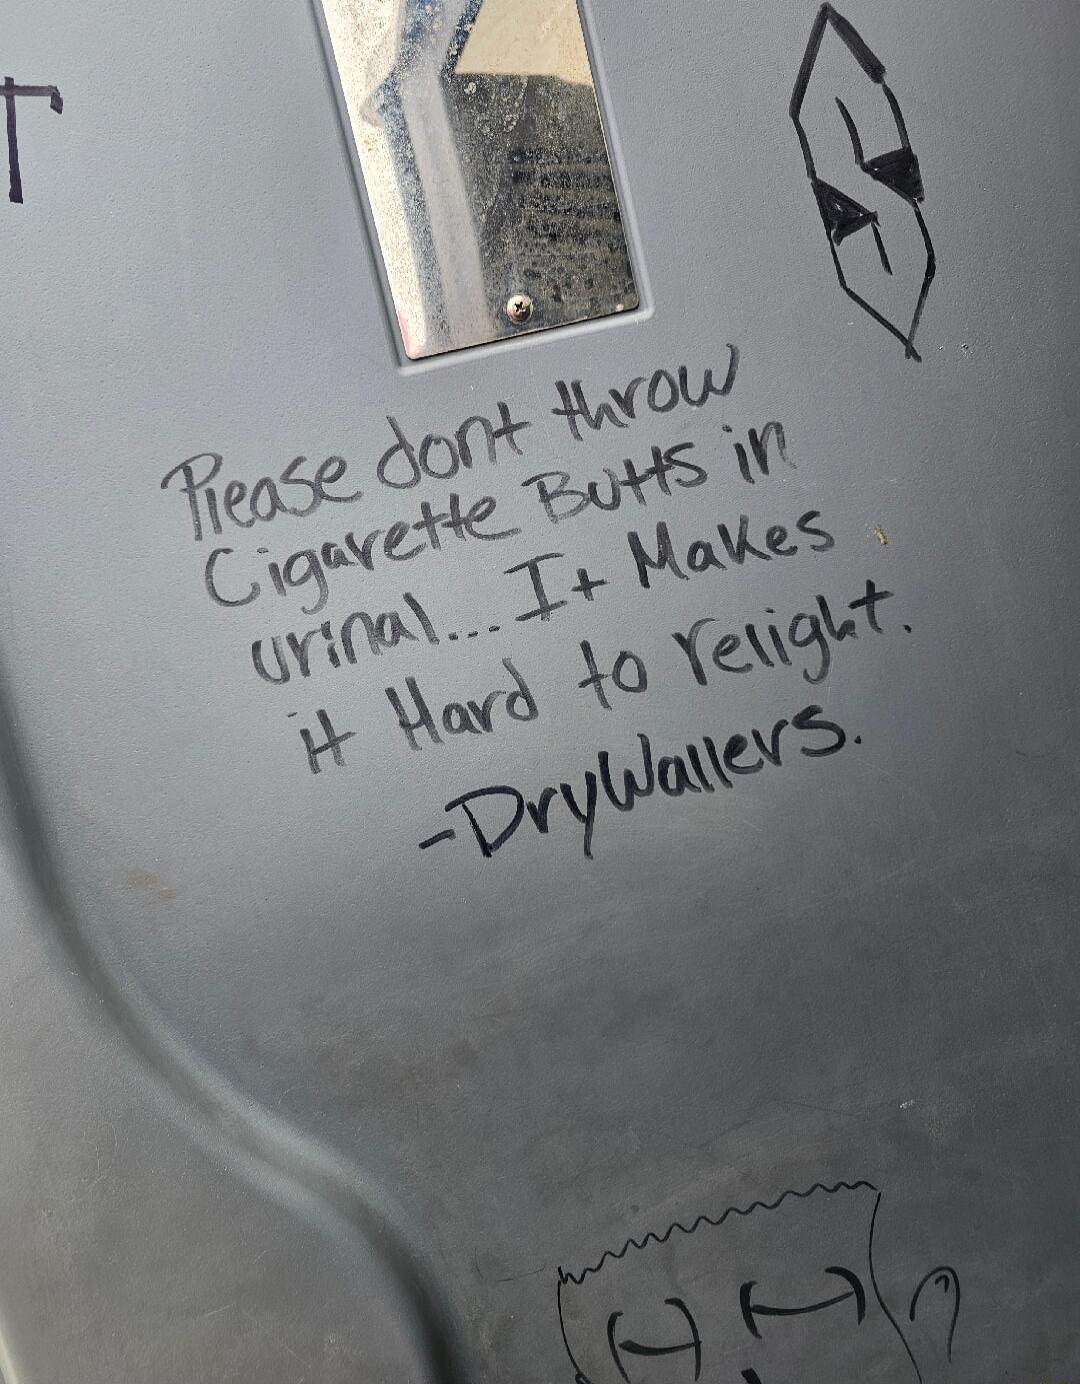 Please dont throw
Cigarette Butts in
urinal... It Makes
it Hard to relight.
-DryWallers.